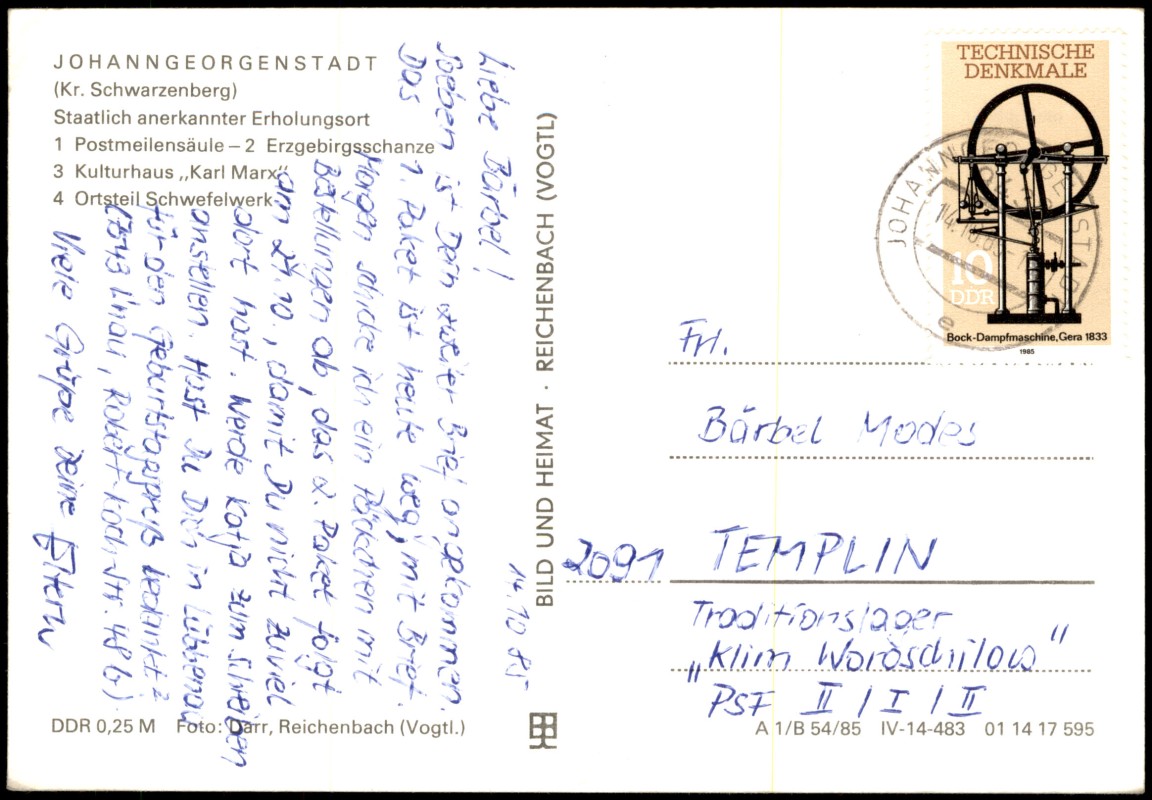 JOHANNGEORGENSTADT
(Kr. Schwarzenberg)
Staatlich anerkannter Erholungsort
1 Postmeilensäule – 2 Erzgebirgsschanze
3 Kulturhaus „Karl Marx“
4 Ortsteil Schwefelwerk
14 10 85
Liebe Bärbel!
Soeben ist Dein zweiter Brief angekommen.
Das 1. Paket ist heute weg, mit Brief.
Morgen schicke ich ein Päckchen mit
Bestellungen ab, das 2. Paket folgt
am 24.10., damit Du nicht zuviel
dort hast. Werde Katja zum Schreiben
anstellen. Hast Du Dich in Lübbenau
für den Geburtstagsgruß bedankt?
(7543 Lübbenau, Robert-Koch-Str. 48b).
Viele Grüße Deine Eltern
DDR 0,25 M Foto: Darr, Reichenbach (Vogtl.)
BILD UND HEIMAT · REICHENBACH (VOGTL)
TECHNISCHE
DENKMALE
10
DDR
Bock-Dampfmaschine, Gera 1833
1985
JOHANNGEORGENSTADT
e
Frl.
Bärbel Modes
2091 TEMPLIN
Traditionslager
„Klim Woroschilow“
PSF II / I / II
A 1/B 54/85 IV-14-483 01 14 17 595